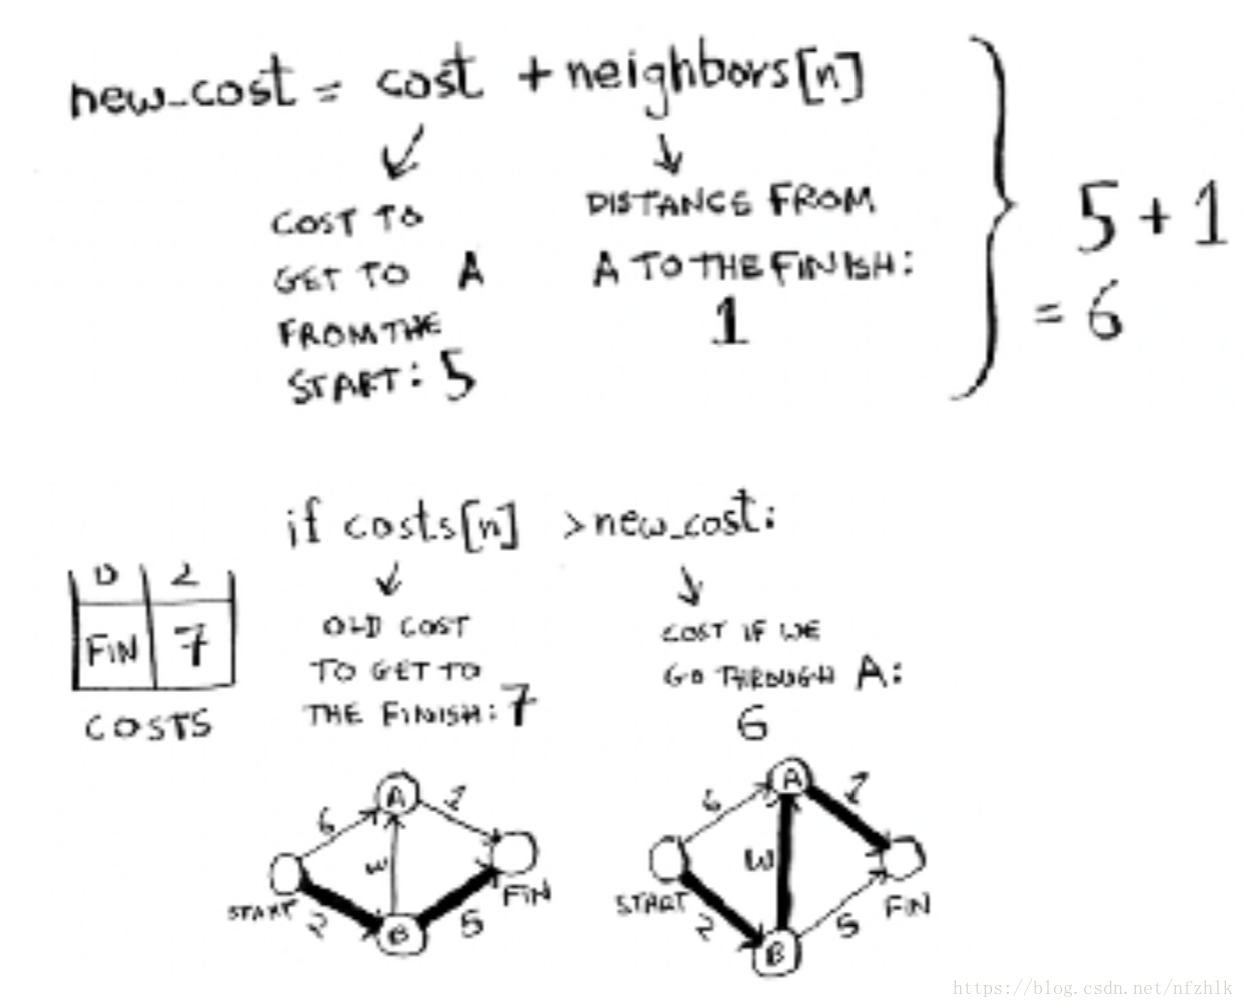 new_cost = cost + neighbors[n]
COST TO
GET TO A
FROM THE
START: 5
DISTANCE FROM
A TO THE FINISH:
1
5 + 1
= 6
if costs[n] > new_cost:
0 2
FIN 7
COSTS
OLD COST
TO GET TO
THE FINISH: 7
COST IF WE
GO THROUGH A:
6
A
6 1
3
START FIN
2 5
B
A
6 1
3
START FIN
2 5
B
https://blog.csdn.net/nfzhlk